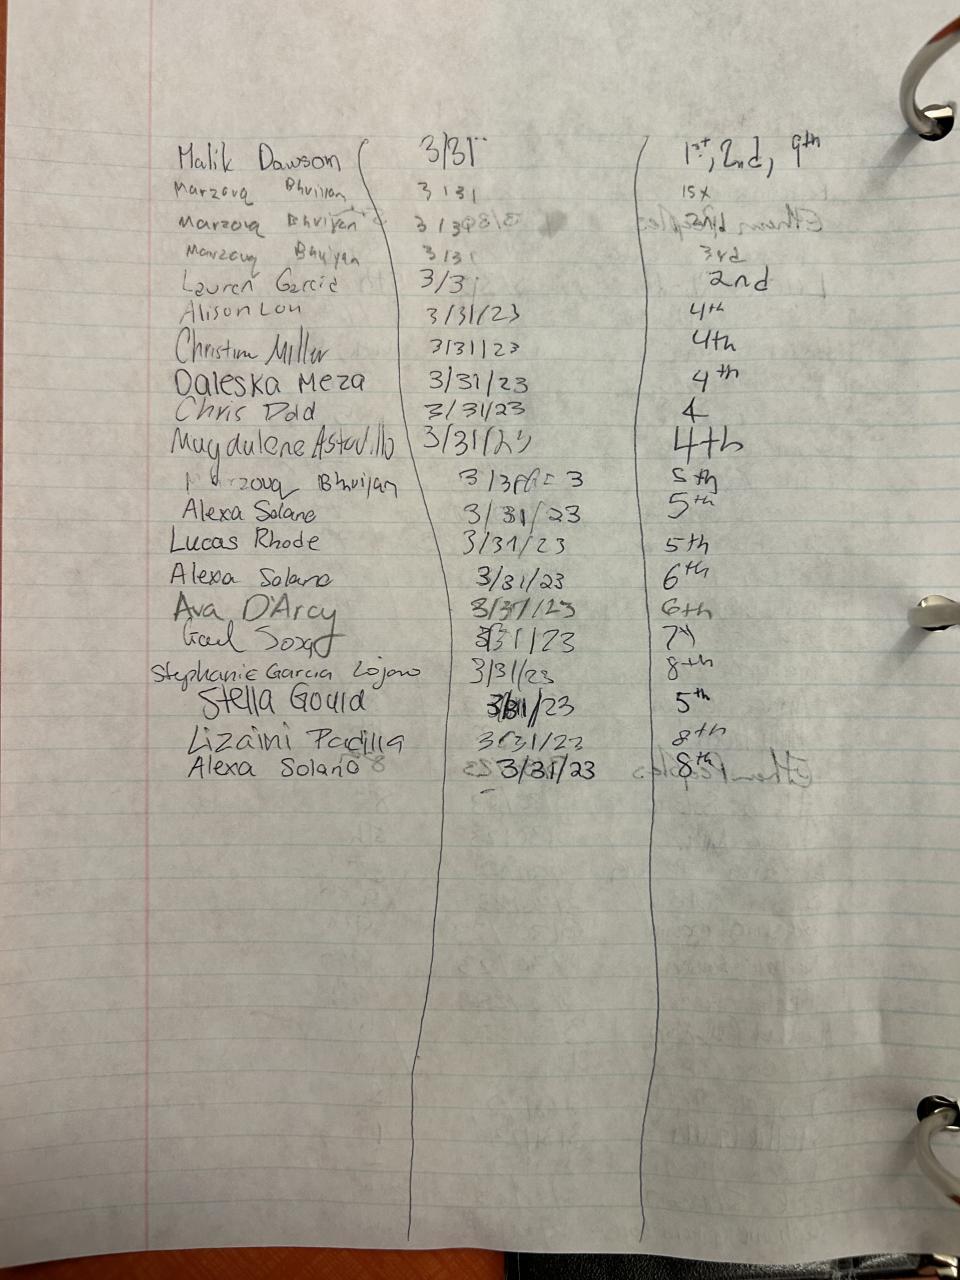 Malik Dawson 3/31 1st, 2nd, 9th
Marzouq Bhuiyan 3/31 1st
Marzouq Bhuiyan 3/3
Marzouq Bhuiyan 3/31 3rd
Lauren Garcia 3/31 2nd
Alison Lou 3/31/23 4th
Christina Miller 3/31/23 4th
Daleska Meza 3/31/23 4th
Chris Ddd 3/31/23 4
Magdalene Astudillo 3/31/23 4th
Marzouq Bhuiyan 5th
Alexa Solano 3/31/23 5th
Lucas Rhode 3/31/23 5th
Alexa Solano 3/31/23 6th
Ava D'Arcy 3/31/23 6th
3/31/23 7th
Stephanie Garcia Lojano 3/31/23 8th
Stella Gould 3/31/23 5th
Lizaini Padilla 3/31/23 8th
Alexa Solano 3/31/23 8th